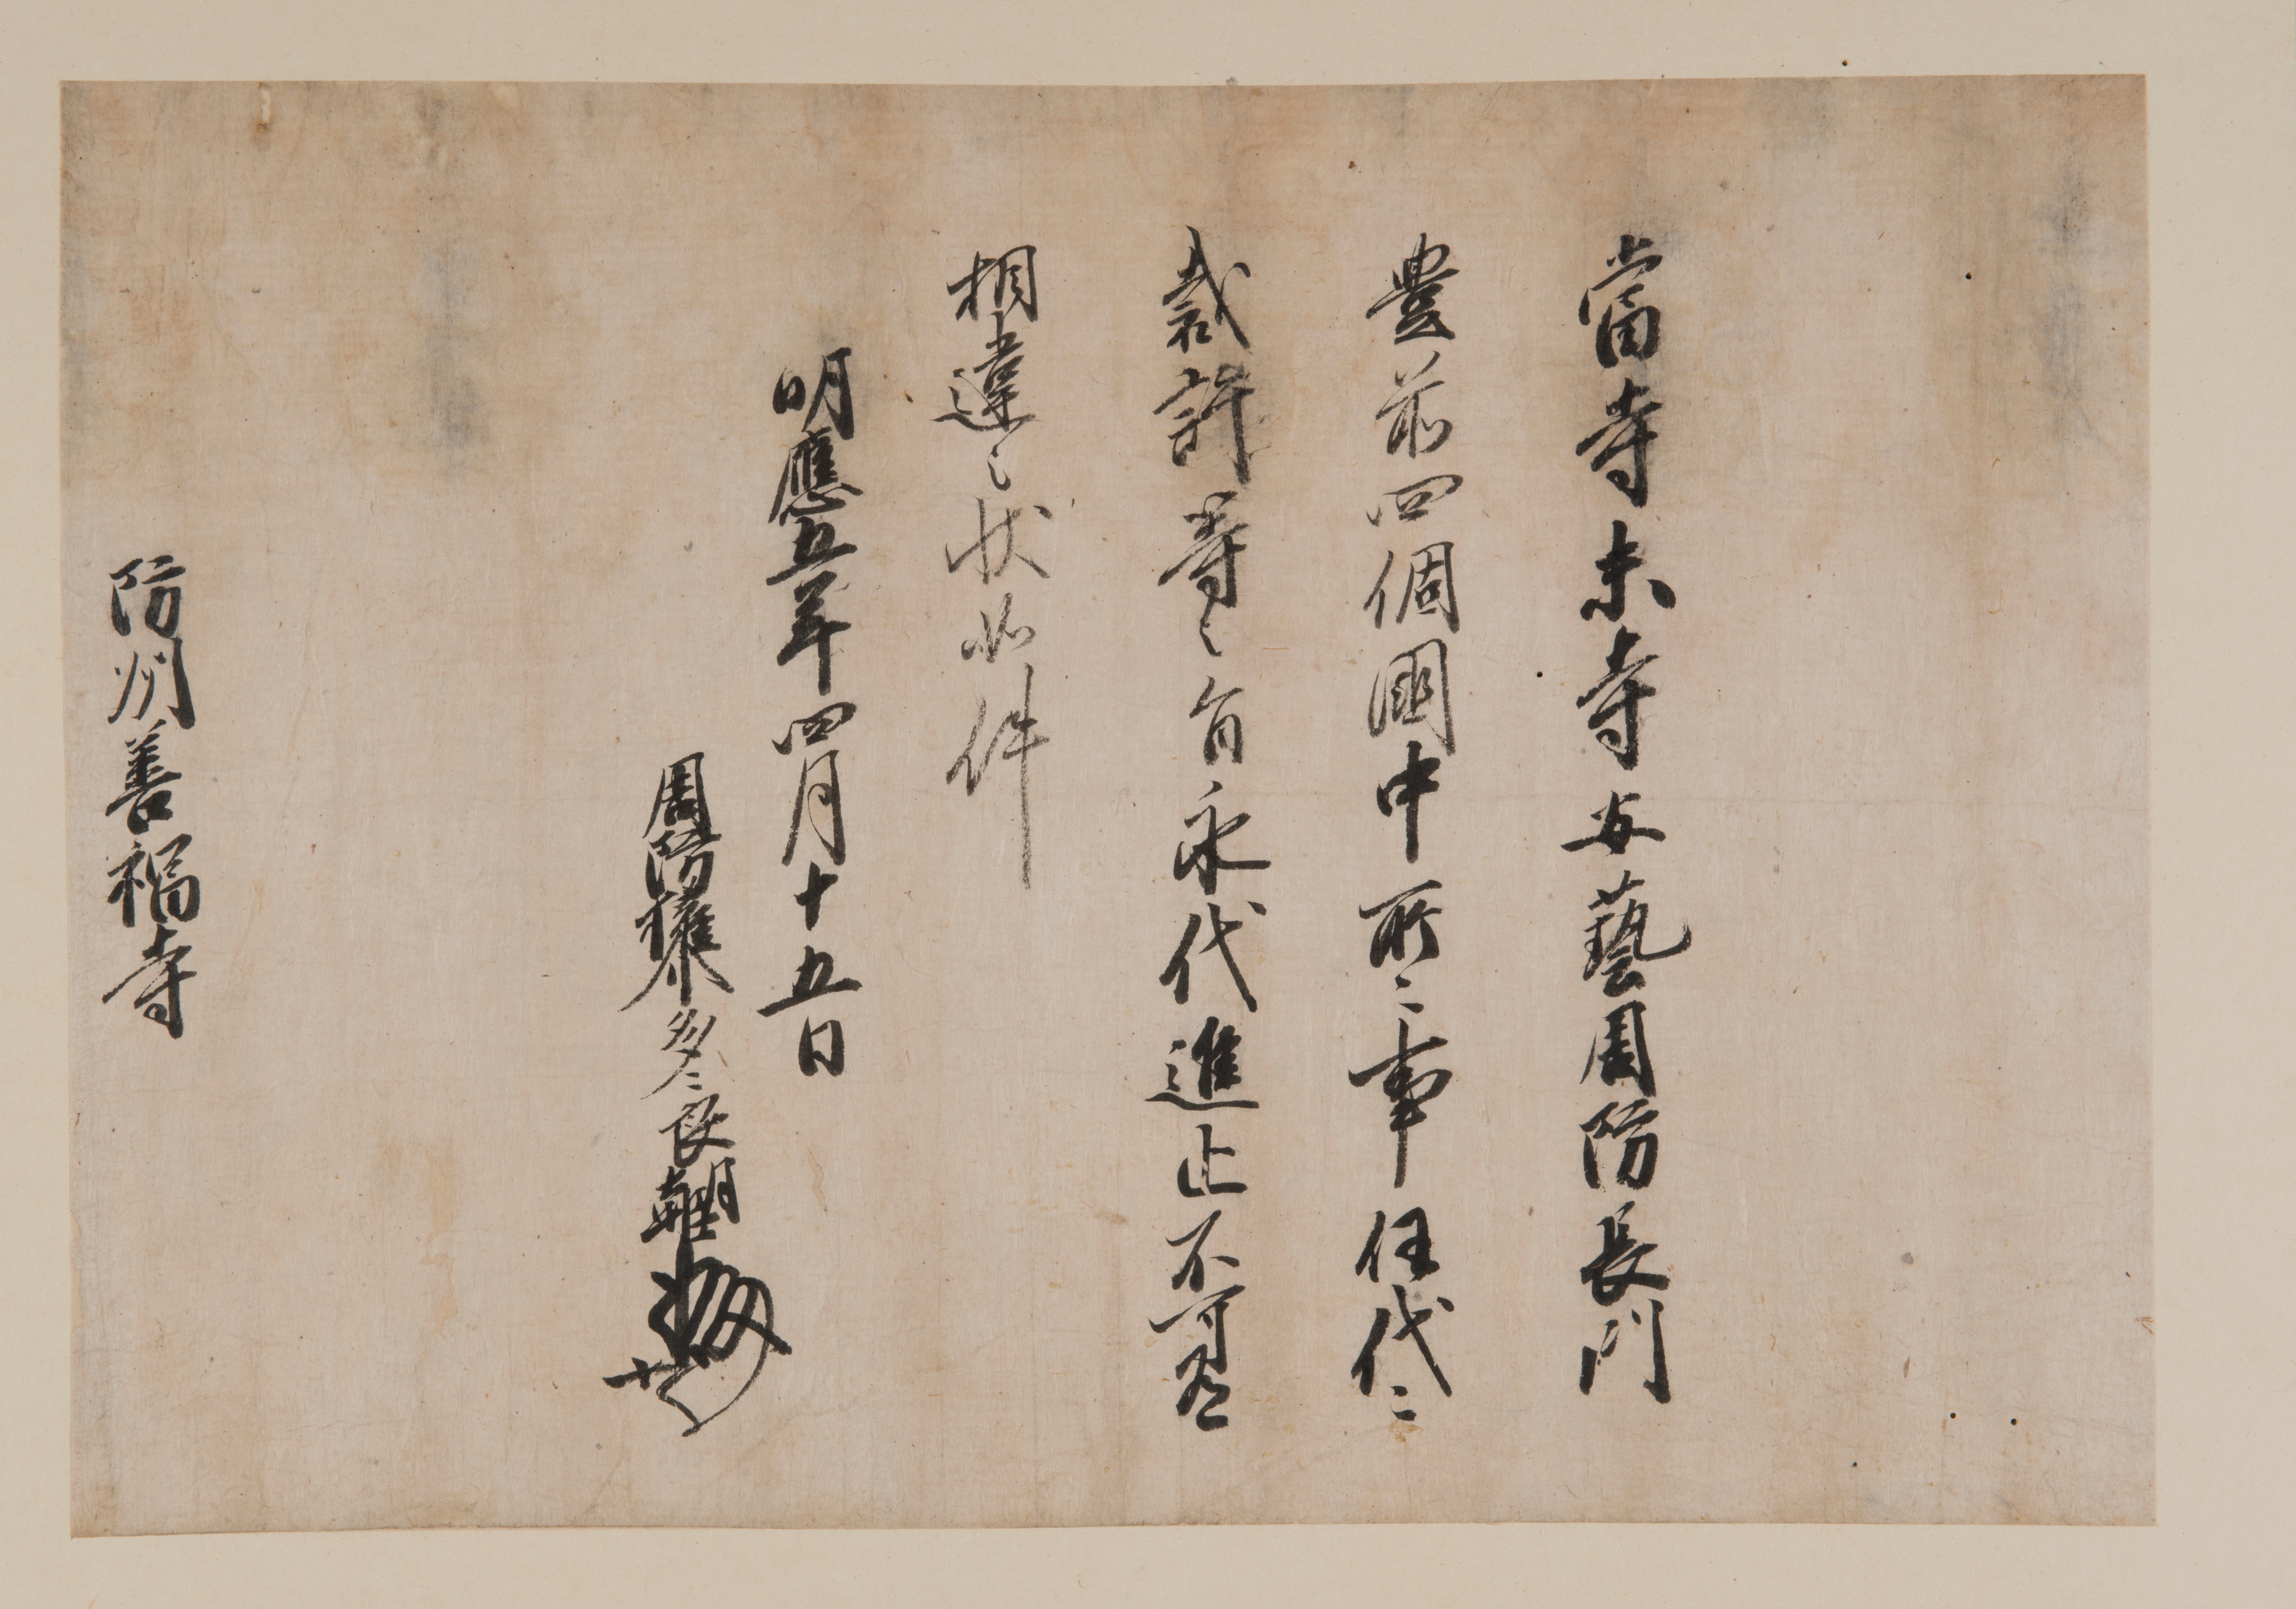 當寺末寺安藝周防長門
豊前四個國中所〻事任代〻
裁許等之旨永代進止不可有
相違之状如件
明應五年四月十五日
周防權介多〻良朝臣
防州善福寺